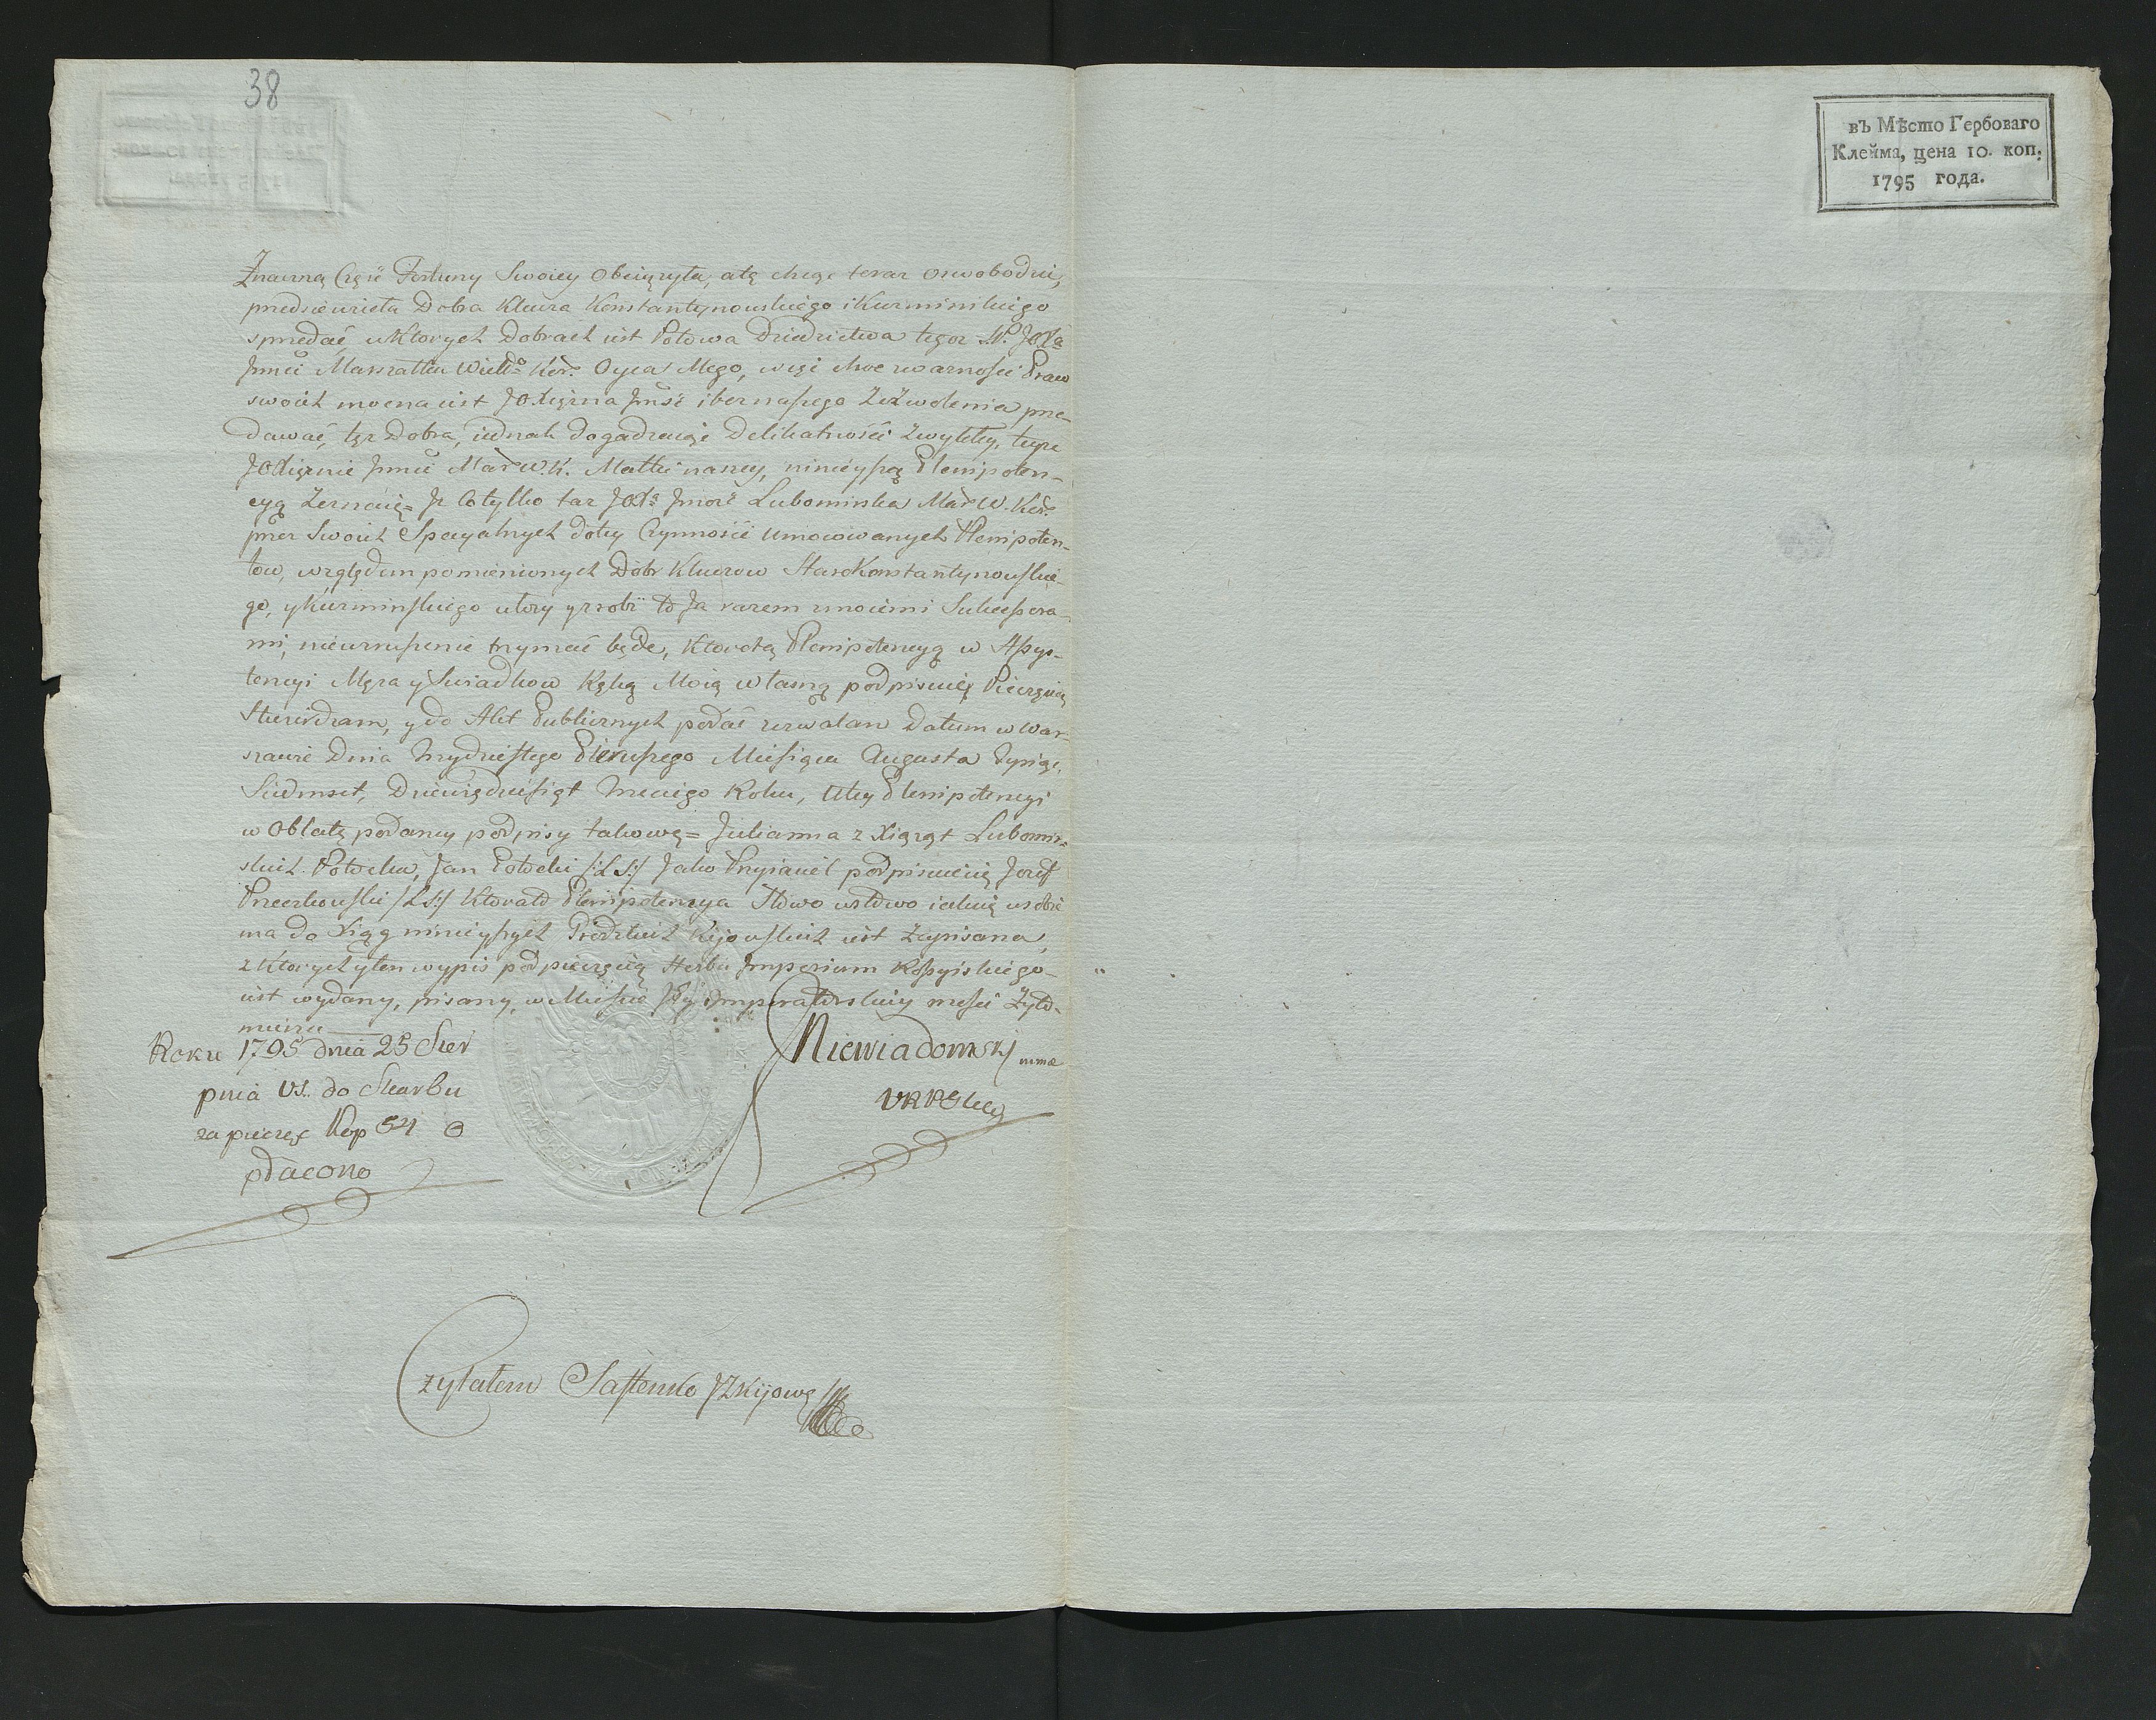 38
въ Мѣсто Гербоваго
Клейма, цена 10. коп.
1795 года.
Znaczną Część Fortuny Swoiey Obciążyła, atę chcąc teraz oswobodzić,
przedsiewzieła Dobra Klucza Konstantynowskiego i Kuzminskiego
sprzedać, w Ktorych Dobrach iest Połowa Dziedzictwa tegoż
Jmći Marszałka Wielko Kor. Oyca Mego, więc choc zwarnosci Praw
swoich mocna iest JOXiężna Jmść i bez naszego Zezwolenia prze-
dawać, tęż Dobra, iednak dogadzaiąc Delikatności Zwykłey, teyże
JOXiężnie Jmći Mar W. K. Matki naszey, ninieyszą Plenipoten-
cyą Zeznaię= Jż Cotylko taż JOXa Jmość Lubomirska Mar W. Kor.
przez Swoich Specyalnych dotey Czynności umocowanych Plenipoten-
tow, względem pomienionych Dobr Kluczow StaroKonstantynowskie-
go, y Kuzminskiego utoży y zrobi to Ja razem zmoiemi Sukcessora-
mi, niewzruszenie trzymać będę, Ktorotą Plenipotencyą w Assys-
tencyi Męża y Swiadkow Ręką Moią własną podpisuię Pieczęcią
Stwierdzam, y do Akt Publicznych podać zezwalam Datum w War-
szawie Dnia trzydziestego Pierwszego Miesiąca Augusta Tysiąc,
Siedmset, Dziewiędziesiąt trzeciego Roku, Utey Plenipotencyi
w Oblatę podaney podpisy takowę= Julianna z Xiążąt Lubomir-
skich Potocka, Jan Potocki /:LS:/ Jako Przyiaciel podpisuię się Jozef
Przeczkowski /:LS:/ Ktorato Plenipotencya Słowo wsłowo iaksię wsobie
ma do Xiąg ninieyszych Grodzkich Kijowskich iest Zapisana,
z Ktorych y ten wypis pod pieczęcią Herbu Imperium Rossyiskiego
iest wydany, pisany, w Mieście Jey Imperatorskiey mości Żyto-
mierzu
Roku 1795 dnia 25 Sier
pnia VS. do Skarbu
za pieczęć Kop 54
płacono
Niewiadomski mma
Czytałem JZKijowę